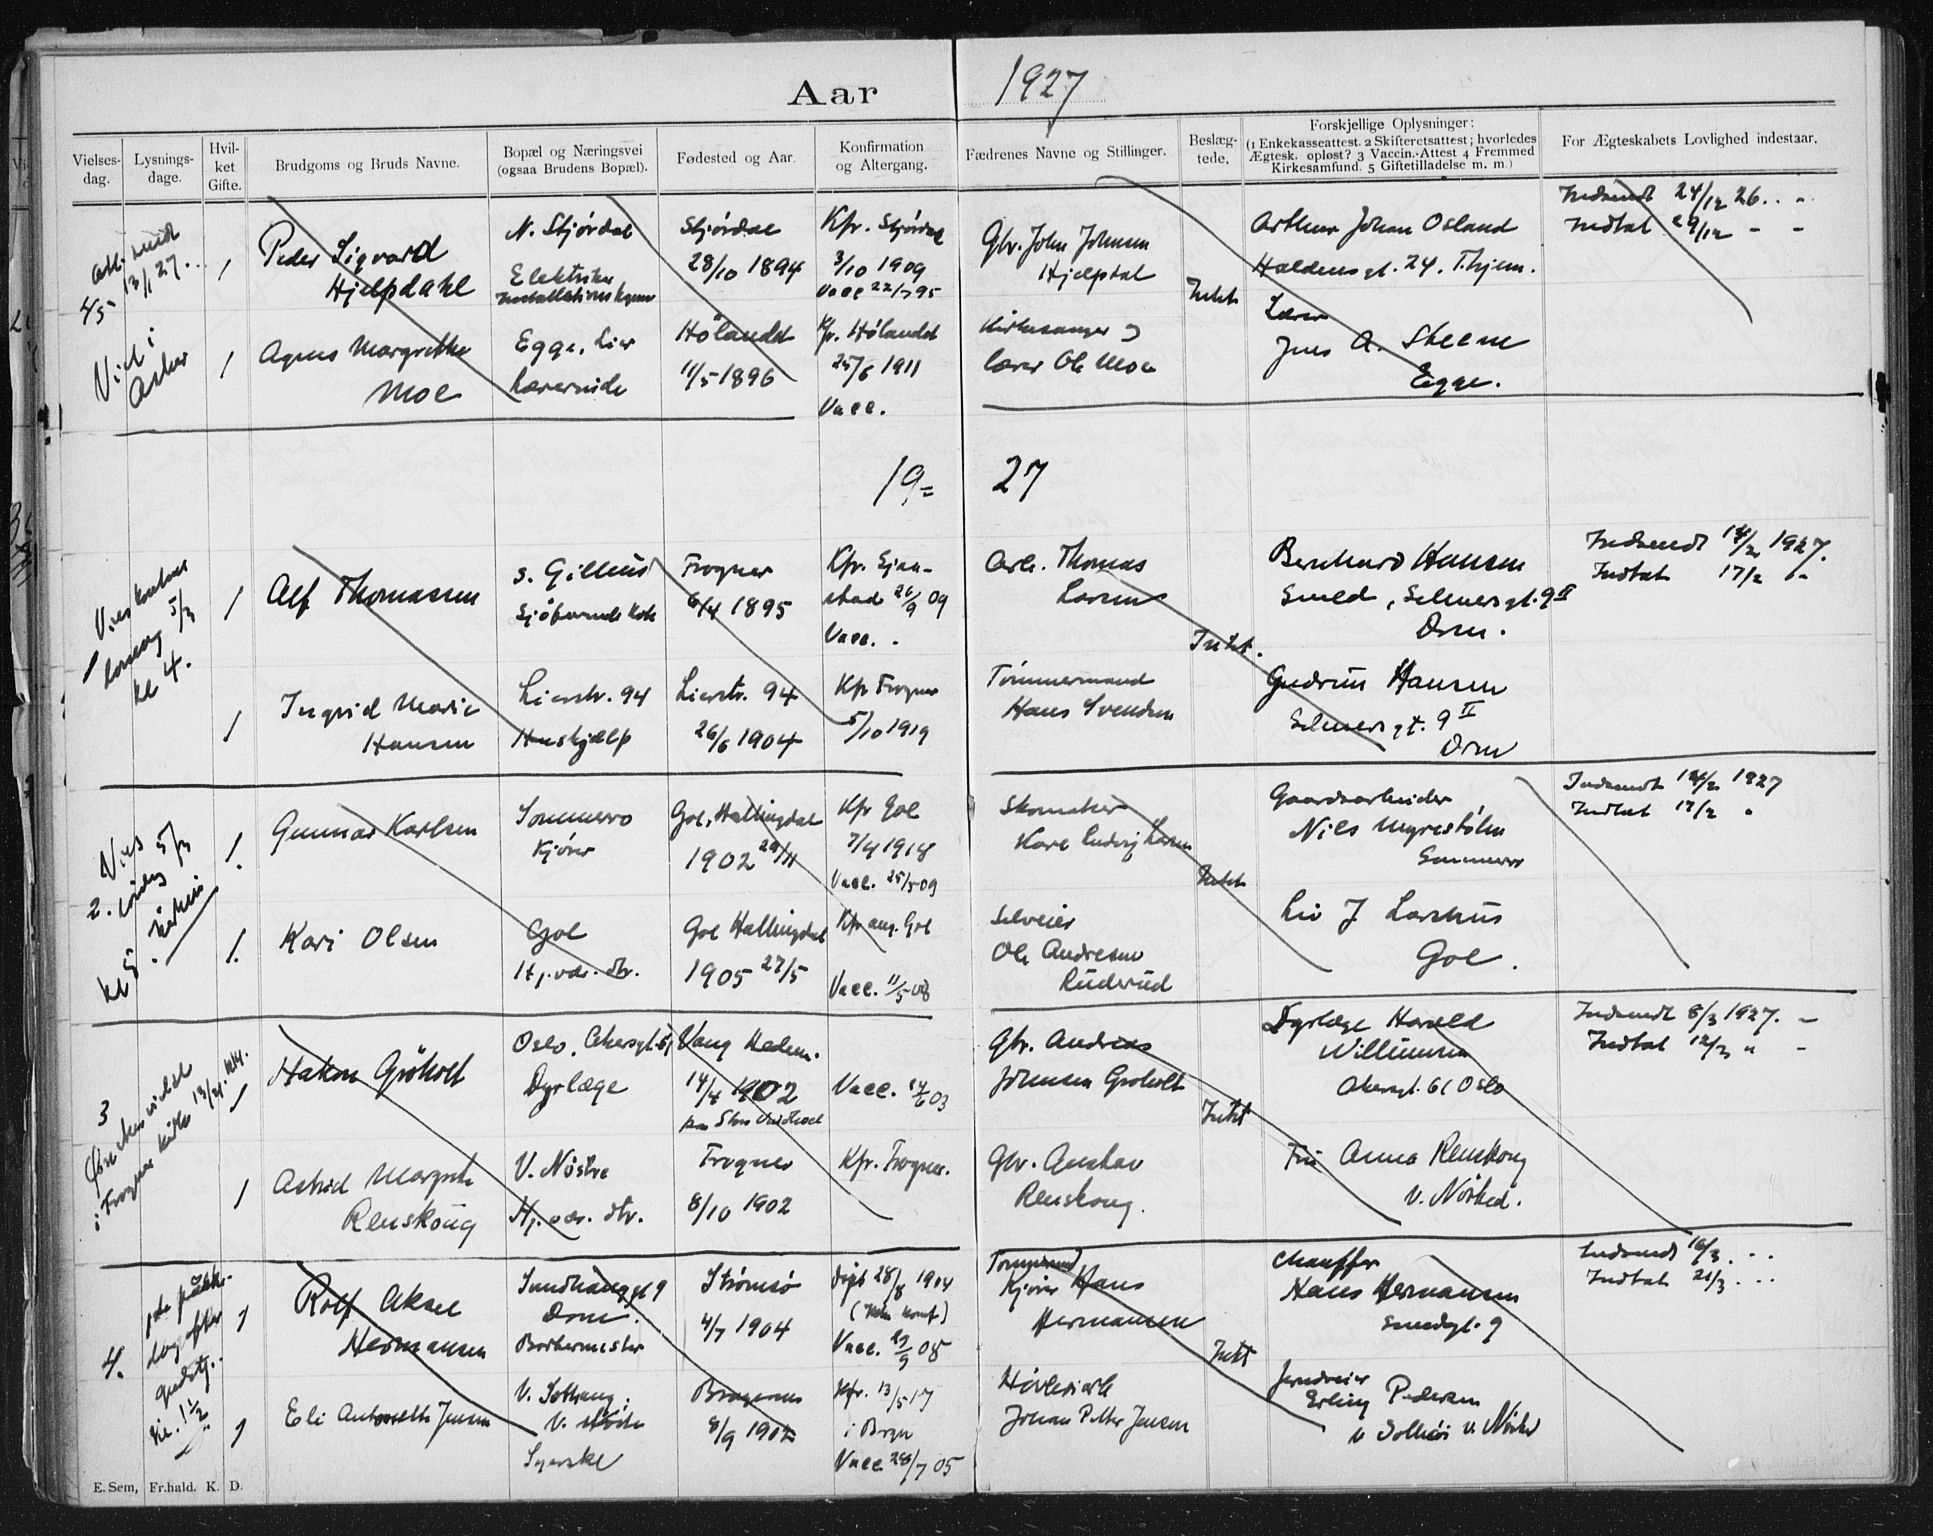 Aar 1927
Vielses-dag.
Lysnings-dage.
Hvil-ket Gifte.
Brudgoms og Bruds Navne.
Bopæl og Næringsvei (ogsaa Brudens Bopæl).
Fødested og Aar.
Konfirmation og Altergang.
Fædrenes Navne og Stillinger.
Beslæg-tede.
Forskjellige Oplysninger: (1 Enkekasseattest. 2 Skifteretsattest; hvorledes Ægtesk. opløst? 3 Vaccin.-Attest 4 Fremmed Kirkesamfund. 5 Giftetilladelse m. m.)
For Ægteskabets Lovlighed indestaar.
45
13/1 27.
Viet i
Asker
1
Peder Sigvard
Hjelpdahl
N. Stjørdal
Elektriker
Stjørdal
28/10 1894
Kfr. Stjørdal
3/10 1909
Vacc 22/7 95
Gbr. John Johnsen
Hjelpdal
Intet
Arthur Johan Osland
Haldensgt. 24. Thjem.
Indsendt 24/12 26
Indtat 29/12 " "
1
Agnes Margrethe
Moe
Egge, Lier
Lærerinde
Hølandet
11/5 1896
Kfr. Hølandet
25/6 1911
Vacc.
Kirkesanger og
lærer Ole Moe
Lærer
Jens A. Steene
Egge.
19 = 27
1
5/3
kl 4.
1
Alf Thomassen
S. Gilhus
Frogner
6/4 1895
Kfr. Sjaa-
stad 26/9 09
Vacc. .
Arb. Thomas
Larsen
Intet.
Bernhard Hansen
Smed, Selmersgt. 9 II
Drm.
Indsendt 14/2 1927.
Indtat 17/2 "
1
Ingrid Marie
Hansen
Lierstr. 94
Hushjælp
Lierstr. 94
26/6 1904
Kfr Frogner
5/10 1919
Tømmermand
Hans Svendsen
Gudrun Hansen
Selmersgt. 9 II
Drm
2.
Vies 5/3
lørdag
kl 5.
1.
Gunnar Karlsen
Sommerro
Kjører
Gol, Hallingdal
1902 29/11
Kfr Gol
7/4 1918
Vacc. 25/5 09
Skomaker
Karl Ludvig Larsen
Intet
Gaardsarbeider
Nils Myrestølen
Sommerro
Indsendt 14/2 1927
Indtat 17/2 "
1.
Kari Olsen
Gol
Hj. vær. dtr.
Gol Hallingdal
1905 27/5
Kfr ang. Gol
Vacc. 11/5 08
Selveier
Ole Andresen
Ruderud
Liv J Larshus
Gol.
3
i Frogner kirke 13/4
1
Hakon Grøholt
Oslo, Akersgt. 61
Dyrlæge
Vang Hedem.
14/4 1902
Vacc. 14/6 03
Gbr. Andreas
Johnsen Grøholt
Intet
Dyrlæge Harald
Willumsen
Akersgt. 61 Oslo
Indsendt 8/3 1927. "
Indtat 12/3 " "
1
Astrid Margrete
Renskoug
V. Nøste
Hj. vær. dtr.
Frogner
8/10 1902
Kfr. Frogner.
Gbr. Gustav
Renskoug.
Fru Anna Renskoug
V. Nøsted.
4.
1ste paaske-
dag efter
gudstj.
kl. 1 1/2
1
Rolf Aksel
Hermansen
Drm.
Barbermester
Strømsø
4/7 1904
Døpt 28/8 1904
(ikke konf)
Vacc. 19/9 05
Kjører Hans
Hermansen
Intet
Chauffør
Hans Hermansen
Indsendt 16/3
Indtat 21/3
1
Eli Antonette Jensen
V. Solhaug.
V. Nøste
Syerske
Bragernes
8/9 1902
Kfr. 13/5 17
i Brgn
Vacc 28/7 05
Høvleriarb
Johan Petter Jensen
Erling Pedersen
v Solhøi V. Nøsted
E. Sem, Fr.hald. K. D.